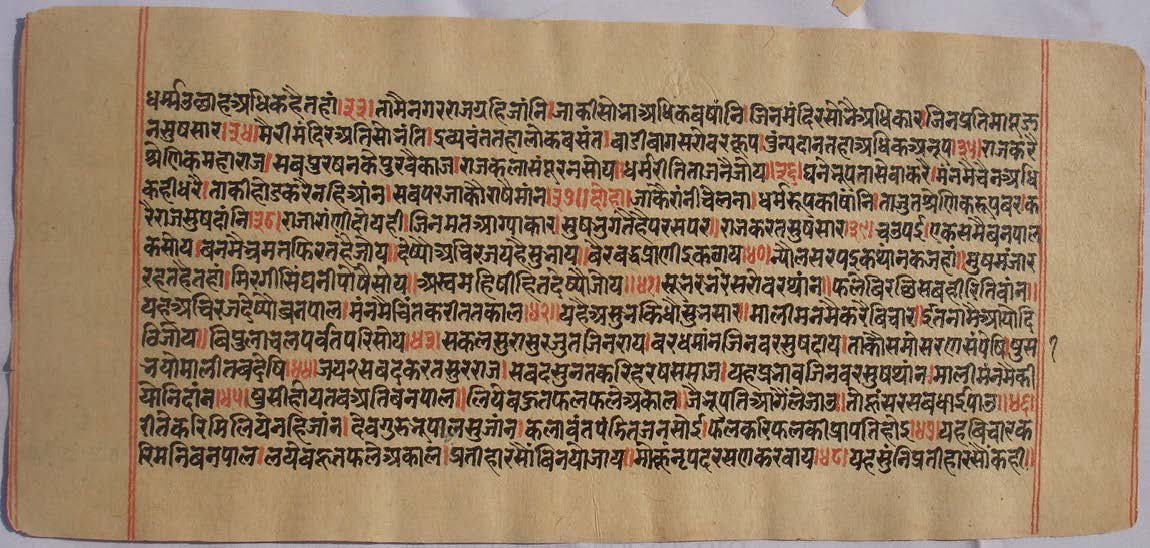 धर्म्मउछाहअधिकहैतहां।३३।नांमैनगरराजग्रहिजांनि।जाकीसोभाअधिकबषांनि।जिनमंदिरसोभैअधिकार।जिनप्रतिमापूज
नसुषसार।३४।मैरीमंदिरअतिसोभंति।द्रव्यवंततहालोकबसंत।बाडीबागसरोवरकूप।पुंन्यदांनतहाअधिकअनूप।३५।राजकरै
श्रेणिकमहाराज।सबपुरषनकेपुरवेकाज।राजकलासंपूरनसोय।धर्मरीतिताजनैजोय।३६।घनेनृपतासेवाकरै।मंनमैचैनअधि
कहीधरै।ताकीहोडकरैनहिआंन।सबपरजाकौराषैमांन।३७।दोहा।जाकैरांनीचेलना।धर्मरूपकीषांनि।ताजुतश्रेणिकभूपबर।क
रैराजसुषदांनि।३८।राजारांणीदोयही।जिनमतआग्याकार।सुषभुगतैहैपरसपर।राजकरतसुषसार।३९।चउपई।एकसमैबनपाल
कसोय।बनमैभ्रमनफिरतहैजोय।देष्यौअचिरजयहैसुभाय।बैरबद्धप्रांणीइकठाय।४०।न्यौलसरपइकथांनकजहां।मुषमंजार
रहतहैतहां।मिरगीसिंघनीपोषैसोय।अस्वमहिषीहितदेष्यैजोय॥४१।सूनरनरेसरोवरथांन।फलेबिरछिसबहीरितिबांन॥
यहअचिरजदेष्योबनपाल।मंनमैचिंतकरीततकाल।४२॥यहैअसुभकिधौसुभसार।मालीमनमैकरैबिचार।इतनांमैआयोदि
विजोय॥बिपुलाचलपर्वतपरिसोय।४३।सकलसुरासुरजुतजिनराय।बरधमांनजिनवरसुषदाय।ताकौसमोसरणसंपेषि।षुस
नयोमालीतबदेषि।४४।जय२सबदकरतसुरराज।सबदसुनतकरिहरषसमाज।यहप्रभावजिनवरसुषथांन।मालीमंनमैकी
योनिदांन।४५।षुसीहोयतबअतिबनपाल॥लियेबहुतफलफूलअकाल।भैनृपतिआगैलेजाउ।तौहूंसरसबधाईपाउ॥४६।
रीतेकरिमिलियेनहिजांन।देवगुरुनृपालसुजांन।कलावंतपंडितजनसोई।फलकरिफलकीप्रापतिहोइ।४७।यहबिचारक
रिमनिबनपाल।लयेबहुतफलेअकाल।प्रतीहारसोबिनयोजाय।मोकूंनृपदरसणकरवाय।४८।यहसुनिप्रतीहारसोकही॥